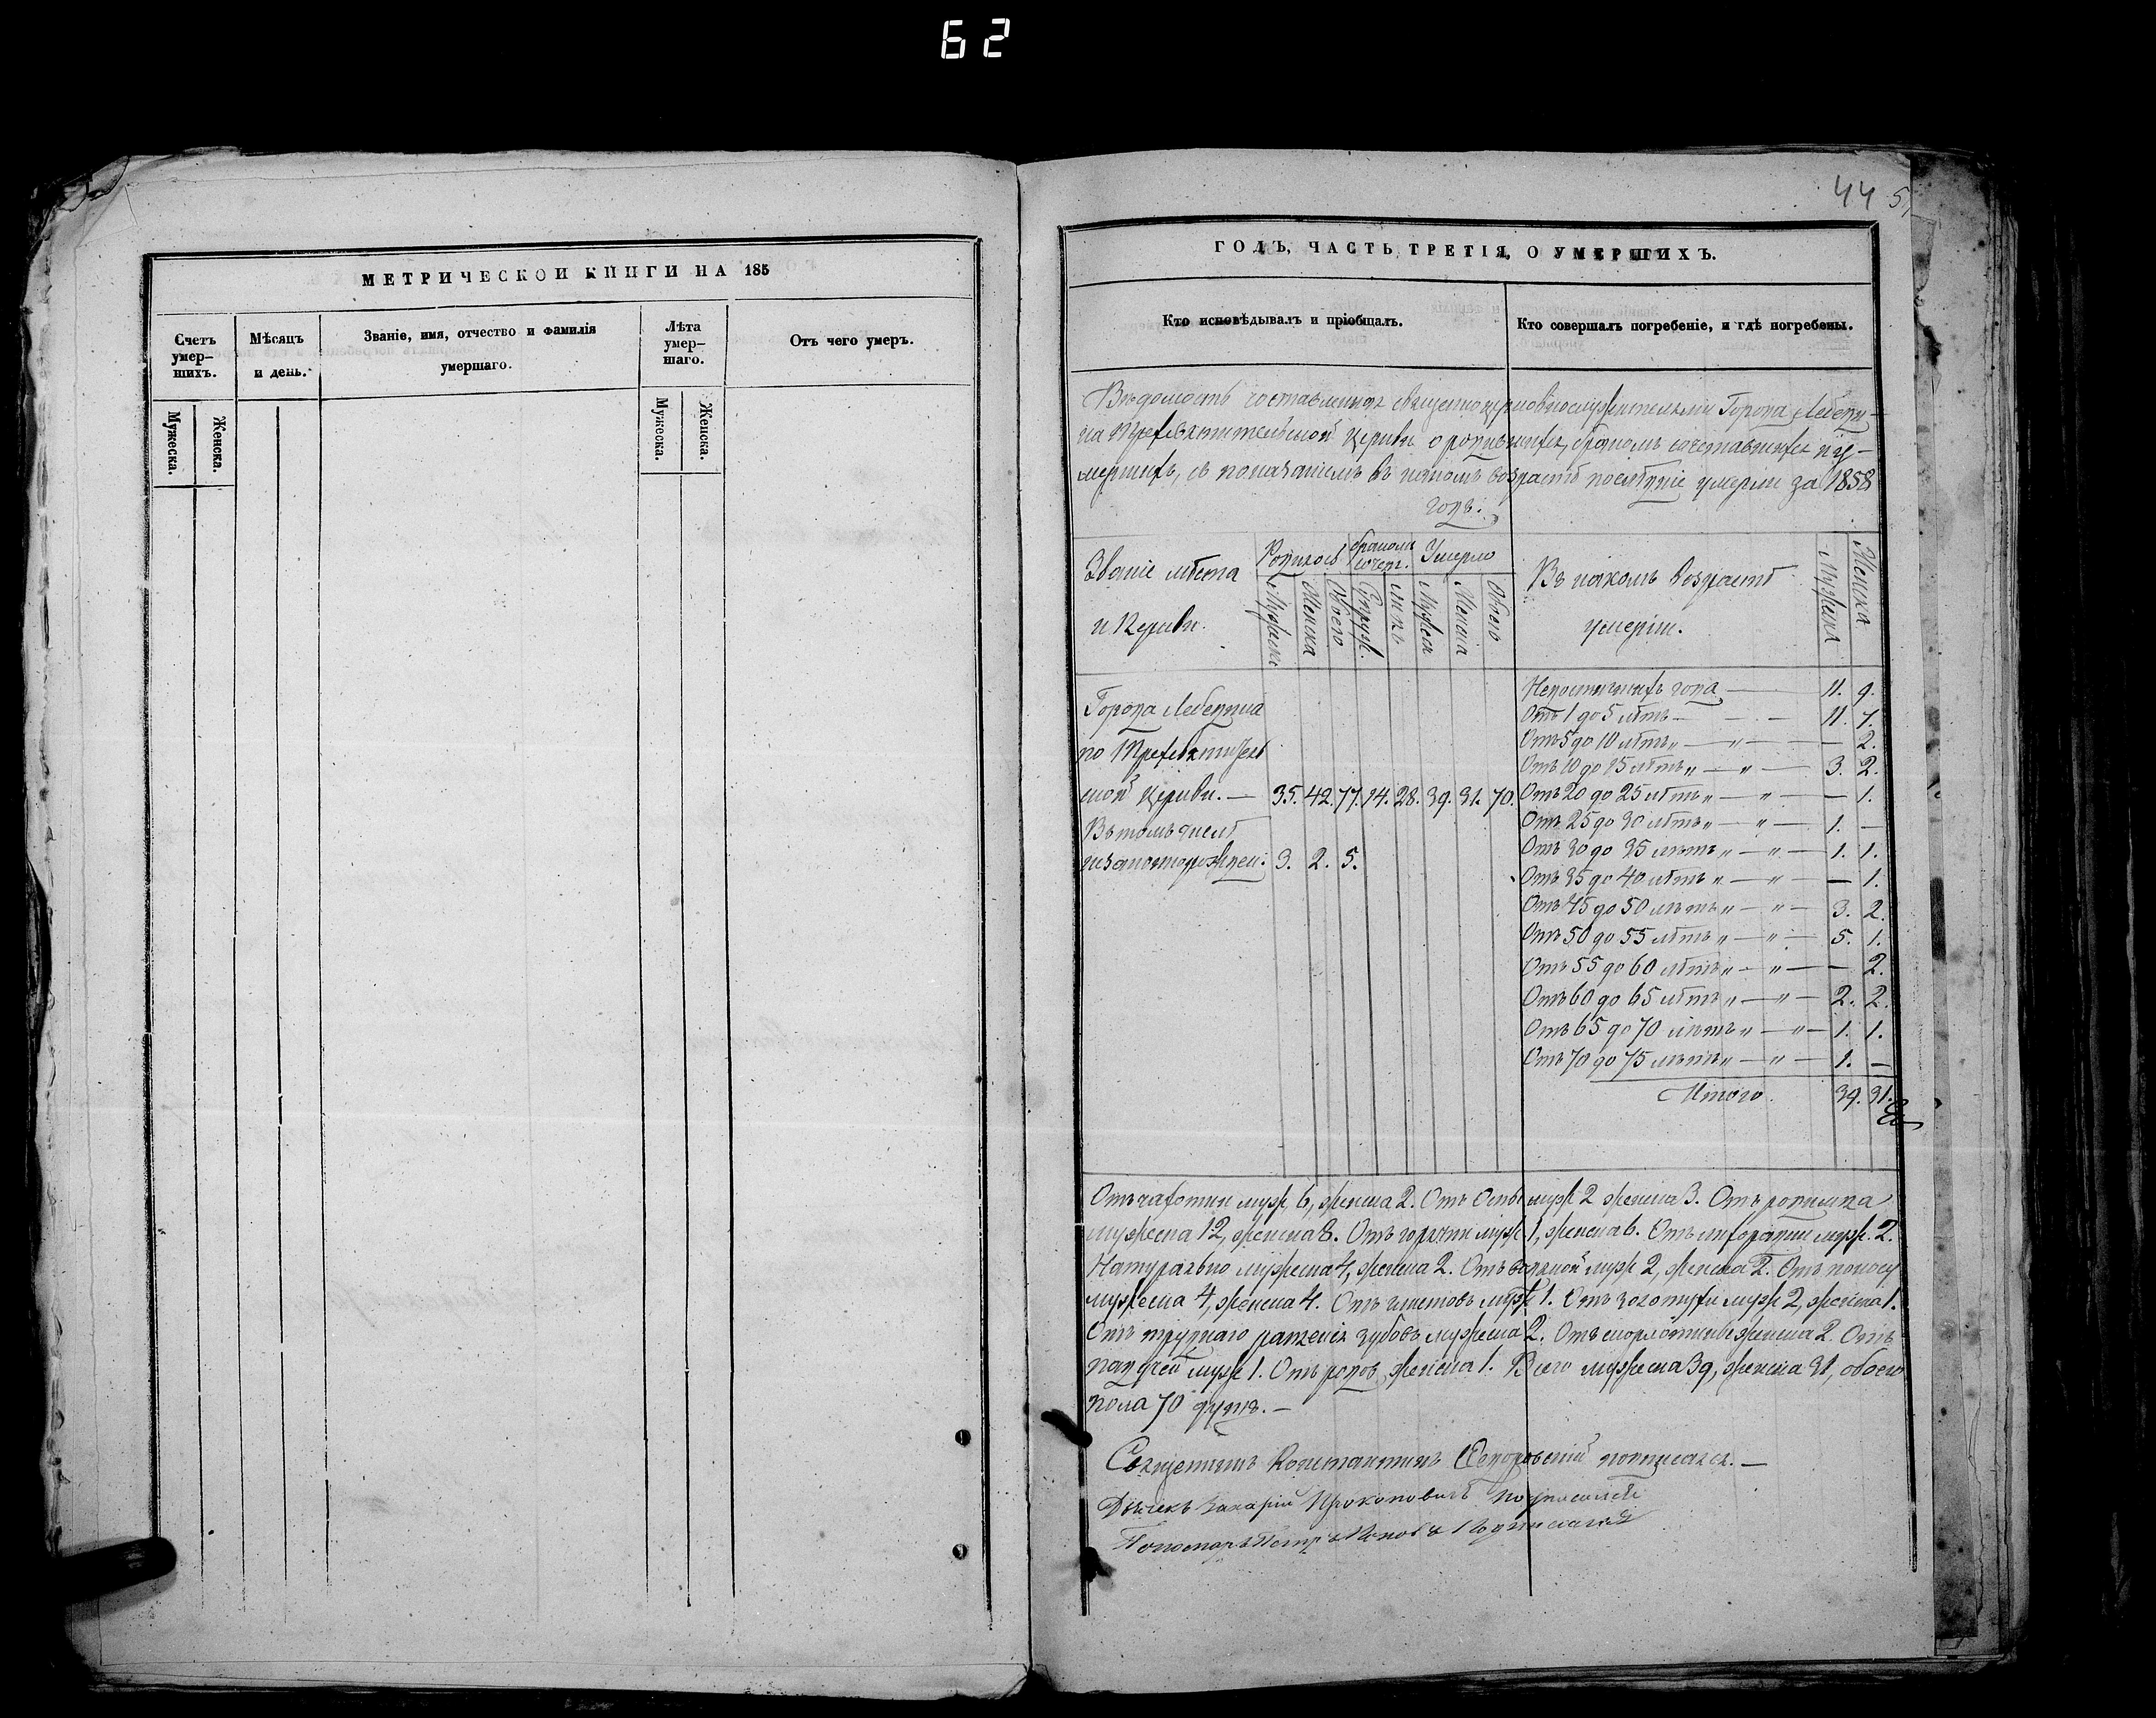 62
МЕТРИЧЕСКОЙ КНИГИ НА 185
Счетъ умер-шихъ.
Мужеска.
Женска.
Мѣсяцъ и день.
Званіе, имя, отчество и фамилія умершаго.
Лѣта умер-шаго.
Мужеска.
Женска.
Отъ чего умеръ.
44
ГОДЪ, ЧАСТЬ ТРЕТІЯ, О УМЕРШИХЪ.
Кто исповѣдывалъ и пріобщалъ.
Кто совершалъ погребеніе, и гдѣ погребены.
Вѣдомость составленная священноцерковнослужителями Города Лебеди-
на Трехсвятительской церкви о родившихся, бракомъ сочетавшихся и у-
мершихъ, съ показаніемъ въ какомъ возрастѣ послѣдніе умерли за 1858
годъ.
Званіе мѣста и Церкви.
Родилось
Мужеска
Женска
Обоего
бракомъ сочет.
Супруж.
лицъ
Умерло
Мужеск
Женска
Обоего
Въ какомъ возрастѣ умерли.
Мужеска
Женска
Города Лебедина
по Трехсвятитель
ской церкви. — 35. 42. 77. 14. 28. 39. 31. 70.
Въ томъ числѣ
незаконнорожден: 3. 2. 5.
Недостигшихъ года — 11. 9.
Отъ 1 до 5 лѣтъ — — 11. 7.
Отъ 5 до 10 лѣтъ „ — „ — — 2.
Отъ 10 до 15 лѣтъ „ — „ — 3. 2.
Отъ 20 до 25 лѣтъ „ — „ — — 1.
Отъ 25 до 30 лѣтъ „ — „ — 1. —
Отъ 30 до 35 лѣтъ „ — „ — 1. 1.
Отъ 35 до 40 лѣтъ „ — „ — — 1.
Отъ 45 до 50 лѣтъ „ — „ — 3. 2.
Отъ 50 до 55 лѣтъ „ — „ — 5. 1.
Отъ 55 до 60 лѣтъ „ — „ — — 2.
Отъ 60 до 65 лѣтъ „ — „ — 2. 2.
Отъ 65 до 70 лѣтъ „ — „ — 1. 1.
Отъ 70 до 75 лѣтъ „ — „ — 1. —
Итого. 39. 31.
Отъ чахотки муж, 6, женска 2. Отъ Оспы муж 2 женска 3. Отъ родимца
мужеска 12, женска 8. Отъ горячки муж 1, женска 6. Отъ лихорадки муж. 2.
Натурально мужеска 4, женска 2. Отъ водяной муж 2, женска 2. Отъ поносу
мужеска 4, женска 4. Отъ глистовъ муж 1. Отъ золотухи муж 2, женска 1.
Отъ труднаго ращенія зубовъ мужеска 2. Отъ скорлотины женска 2. Отъ
падучей муж 1. Отъ родовъ женска 1. Всего мужеска 39, женска 31, обоего
пола 70 душъ. —
Священникъ Константинъ подписался. —
Дьячекъ Захарій Прокоповичъ подписался
Пономарь Петръ Поповъ Подписался